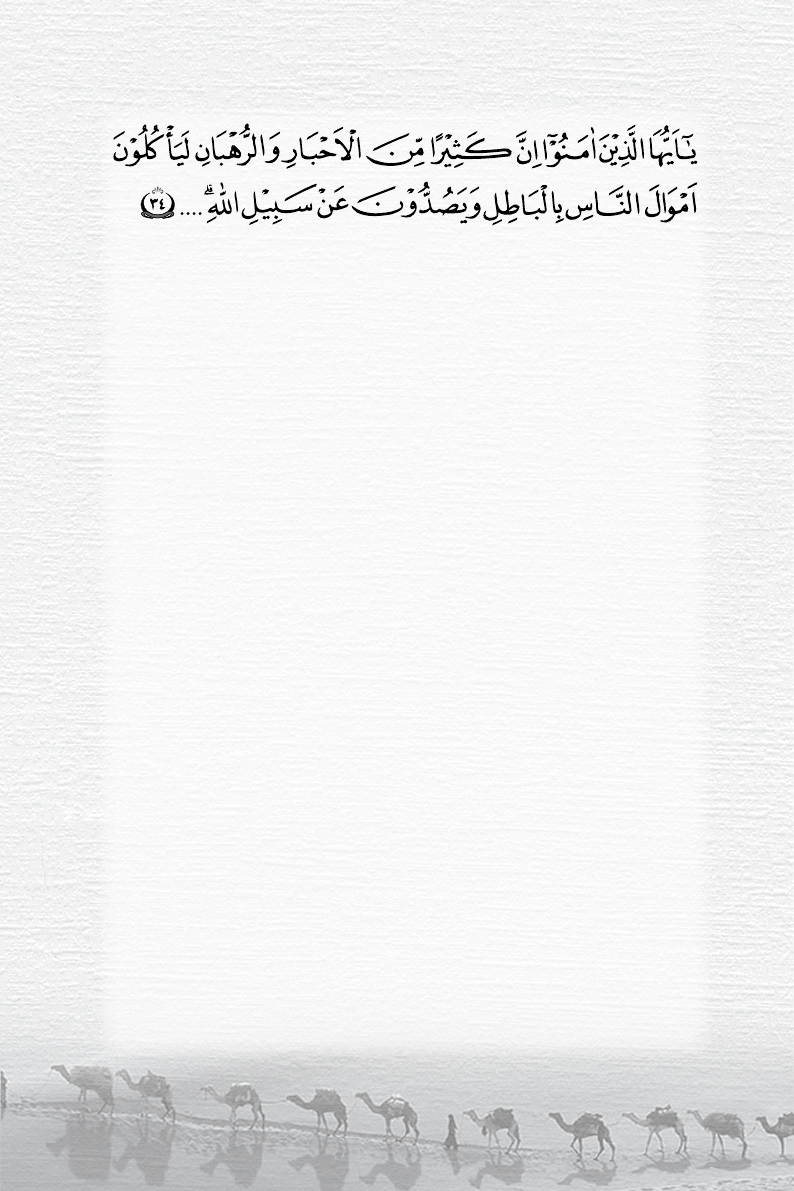 يٰٓاَيُّهَا الَّذِيْنَ اٰمَنُوْٓا اِنَّ كَثِيْرًا مِّنَ الْاَحْبَارِ وَالرُّهْبَانِ لَيَأْكُلُوْنَ
اَمْوَالَ النَّاسِ بِالْبَاطِلِ وَيَصُدُّوْنَ عَنْ سَبِيْلِ اللّٰهِ ۗ .... ﴿٣٤﴾